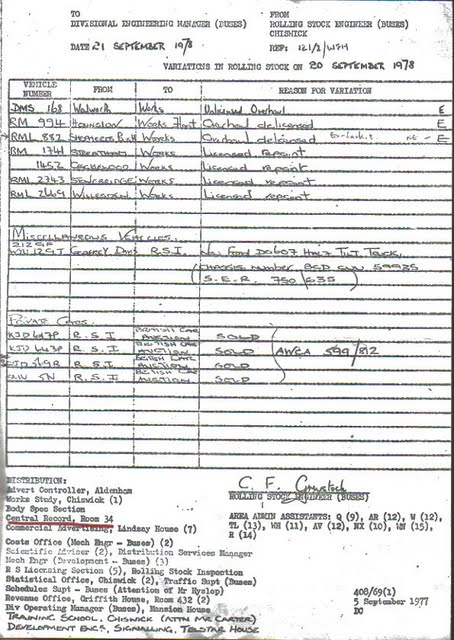 TO FROM
DIVISIONAL ENGINEERING MANAGER (BUSES) ROLLING STOCK ENGINEER (BUSES)
CHISWICK
DATE 21 SEPTEMBER 1978 REF: 121/2/WFH
VARIATIONS IN ROLLING STOCK ON 20 SEPTEMBER 1978
VEHICLE NUMBER FROM TO REASON FOR VARIATION
DMS 168 Walworth Works Unlicensed Overhaul E
RM 994 Hounslow Works Float Overhaul delicensed E
RML 882 Shepherds Bush Works Overhaul delicensed E
RM 1741 Streatham Works Licensed repaint
1452 Works Licensed repaint
RML 2343 Works Licensed repaint
RML 2669 Willesden Works Licensed repaint
Miscellaneous Vehicles.
212SF
WJU 129T Godfrey Davis R.S.I. New Ford D0607 Tilt Truck,
Chassis Number BCD 59935
(S.E.R. 750/635)
Private Cars.
KJD 647P R.S.I British Car Auction SOLD
KJD 643P R.S.I British Car Auction SOLD AWCA 599/812
519R R.S.I British Car Auction SOLD
5N R.S.I British Car Auction SOLD
C. F.
DISTRIBUTION: ROLLING STOCK ENGINEER (BUSES)
Advert Controller, Aldenham
Works Study, Chiswick (1)
Body Spec Section
Central Record, Room 34
Commercial Advertising, Lindsay House (7)
AREA ADMIN ASSISTANTS: Q (9), AR (12), W (12),
TL (13), WH (11), AV (12), NX (10), WN (15),
R (14)
Costs Office (Mech Engr - Buses) (2)
Scientific Adviser (2), Distribution Services Manager
Mech Engr (Development - Buses) (3)
R S Licensing Section (5), Rolling Stock Inspection
Statistical Office, Chiswick (2), Traffic Supt (Buses)
Schedules Supt - Buses (Attention of Mr Hyslop)
Revenue Office, Griffith House, Room 432 (2)
Div Operating Manager (Buses), Mansion House
408/69(1)
5 September 1977
DC
TRAINING SCHOOL, CHISWICK (ATTN MR CARTER)
DEVELOPMENT ENGS, SIGNALLING, TELSTAR HOUSE